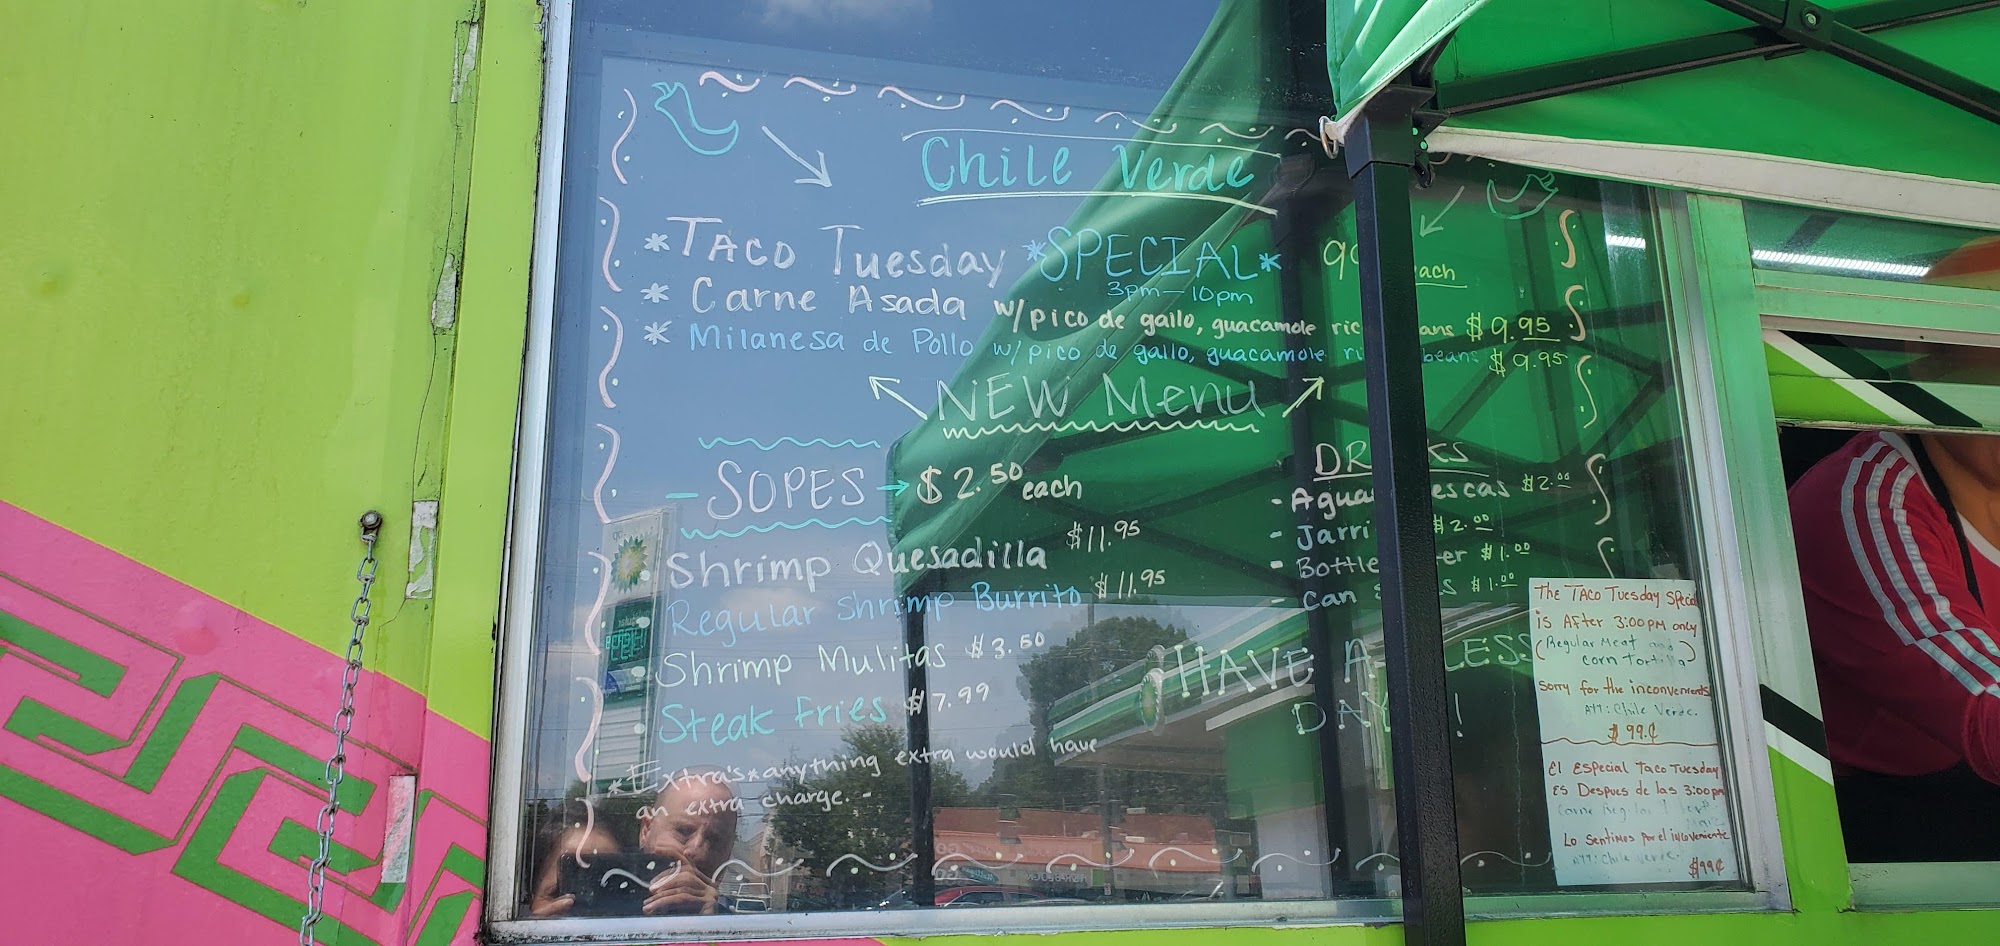 Chile Verde
*TACO Tuesday *SPECIAL* each
3pm-10pm
* Carne Asada w/pico de gallo, guacamole $9.95
* Milanesa de Pollo w/pico de gallo, guacamole beans $9.95
NEW Menu
- SOPES → $2.50 each
• Shrimp Quesadilla $11.95
• Regular Shrimp Burrito $11.95
• Shrimp Mulitas $3.50
• Steak Fries $7.99
*Extra's* anything extra would have
an extra charge. -
DRINKS
- Aguas Frescas $2.00
- Jarri $2.00
- Bottle $1.00
- Can $1.00
HAVE A
DAY!
The TACO Tuesday Special
is After 3:00PM only
(Regular Meat and
corn Tortilla)
Sorry for the inconvenients
ATT: Chile Verde.
$ 99¢
El Especial Taco Tuesday
Es Despues de las 3:00pm
Carne Regular
Lo Sentimos por el inconveniente
ATT: Chile Verde.
$99¢
bp